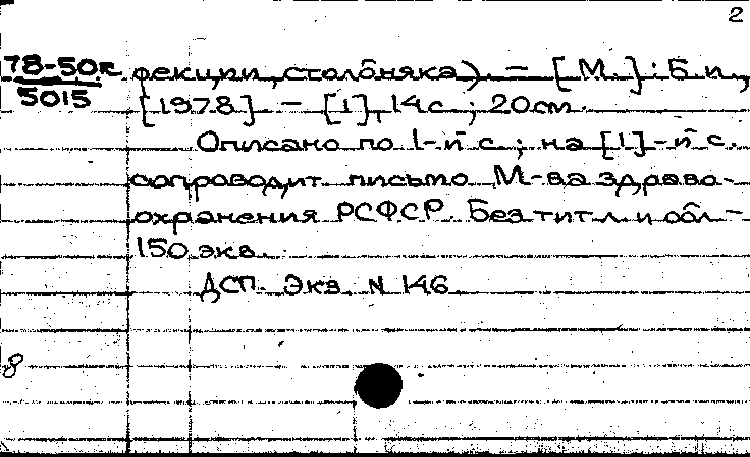 2
78-50к фекции, столбняка). - [М.] : Б.и.,
5015 [1978]. - [1], 14с. ; 20см.
Описано по 1-й с. ; на [1]-й с.
сопроводит. письмо М-ва здраво-
охранения РСФСР. Без тит. л. и обл. -
150 экз.
ДСП. Экз. N 146.
8